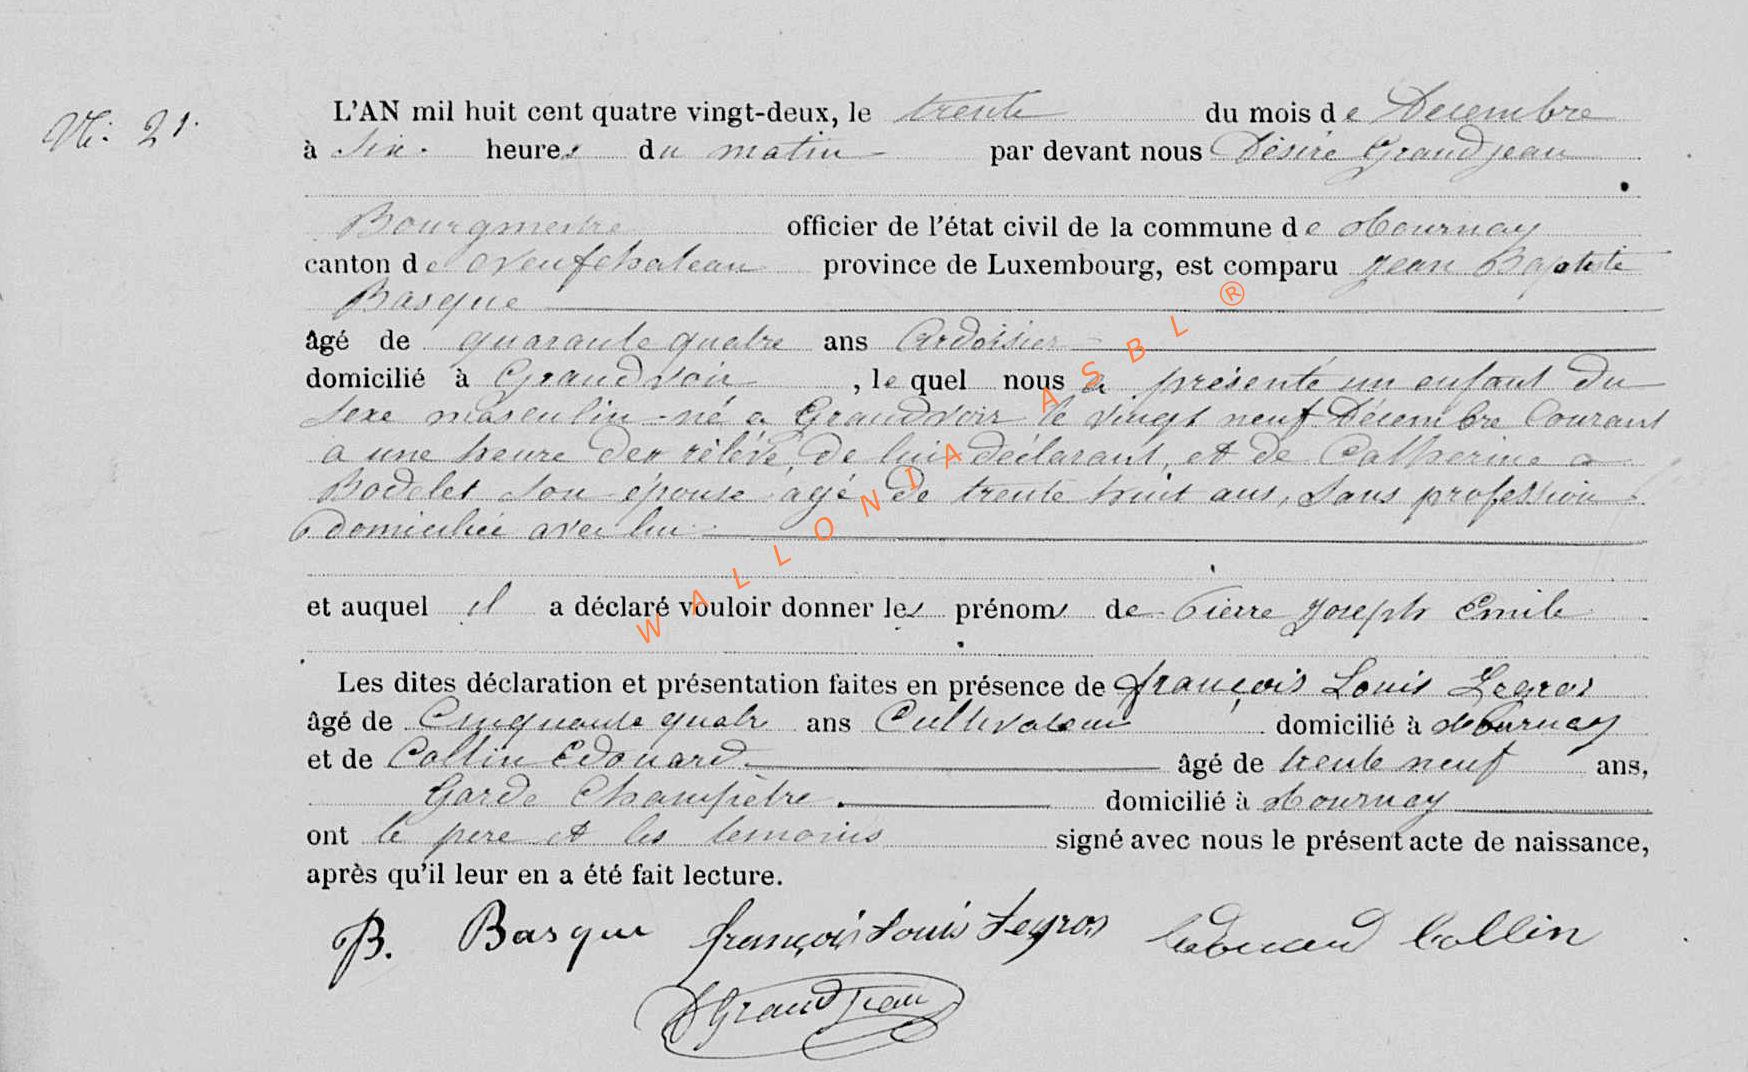 N: 21.
L'AN mil huit cent quatre vingt-deux, le trente du mois de Décembre
à Six. heures du matin par devant nous Désiré Grandjean
Bourgmestre officier de l'état civil de la commune de Tournay
canton de Neufchateau province de Luxembourg, est comparu Jean Baptiste
Basque
âgé de quarante quatre ans Ardoisier
domicilié à Grandvoir, le quel nous a présenté un enfant du
sexe masculin né a Grandvoir le vingt neuf Décembre Courant
a une heure de rélévé, de lui déclarant, et de Catherine
Bodelet son épouse agé de trente huit ans, sans profession
domiciliée avec lui
et auquel il a déclaré vouloir donner les prénoms de Pierre Joseph Emile
Les dites déclaration et présentation faites en présence de françois Louis Legros
âgé de Cinquante quatr ans Cultivateur domicilié à Tournay
et de Collin Edouard âgé de trente neuf ans,
Garde Champêtre. domicilié à Tournay
ont le pere et les temoins signé avec nous le présent acte de naissance,
après qu'il leur en a été fait lecture.
B. Basque françois Louis Legros Edouard Collin
D Grandjean
WALLONIA ASBL ®